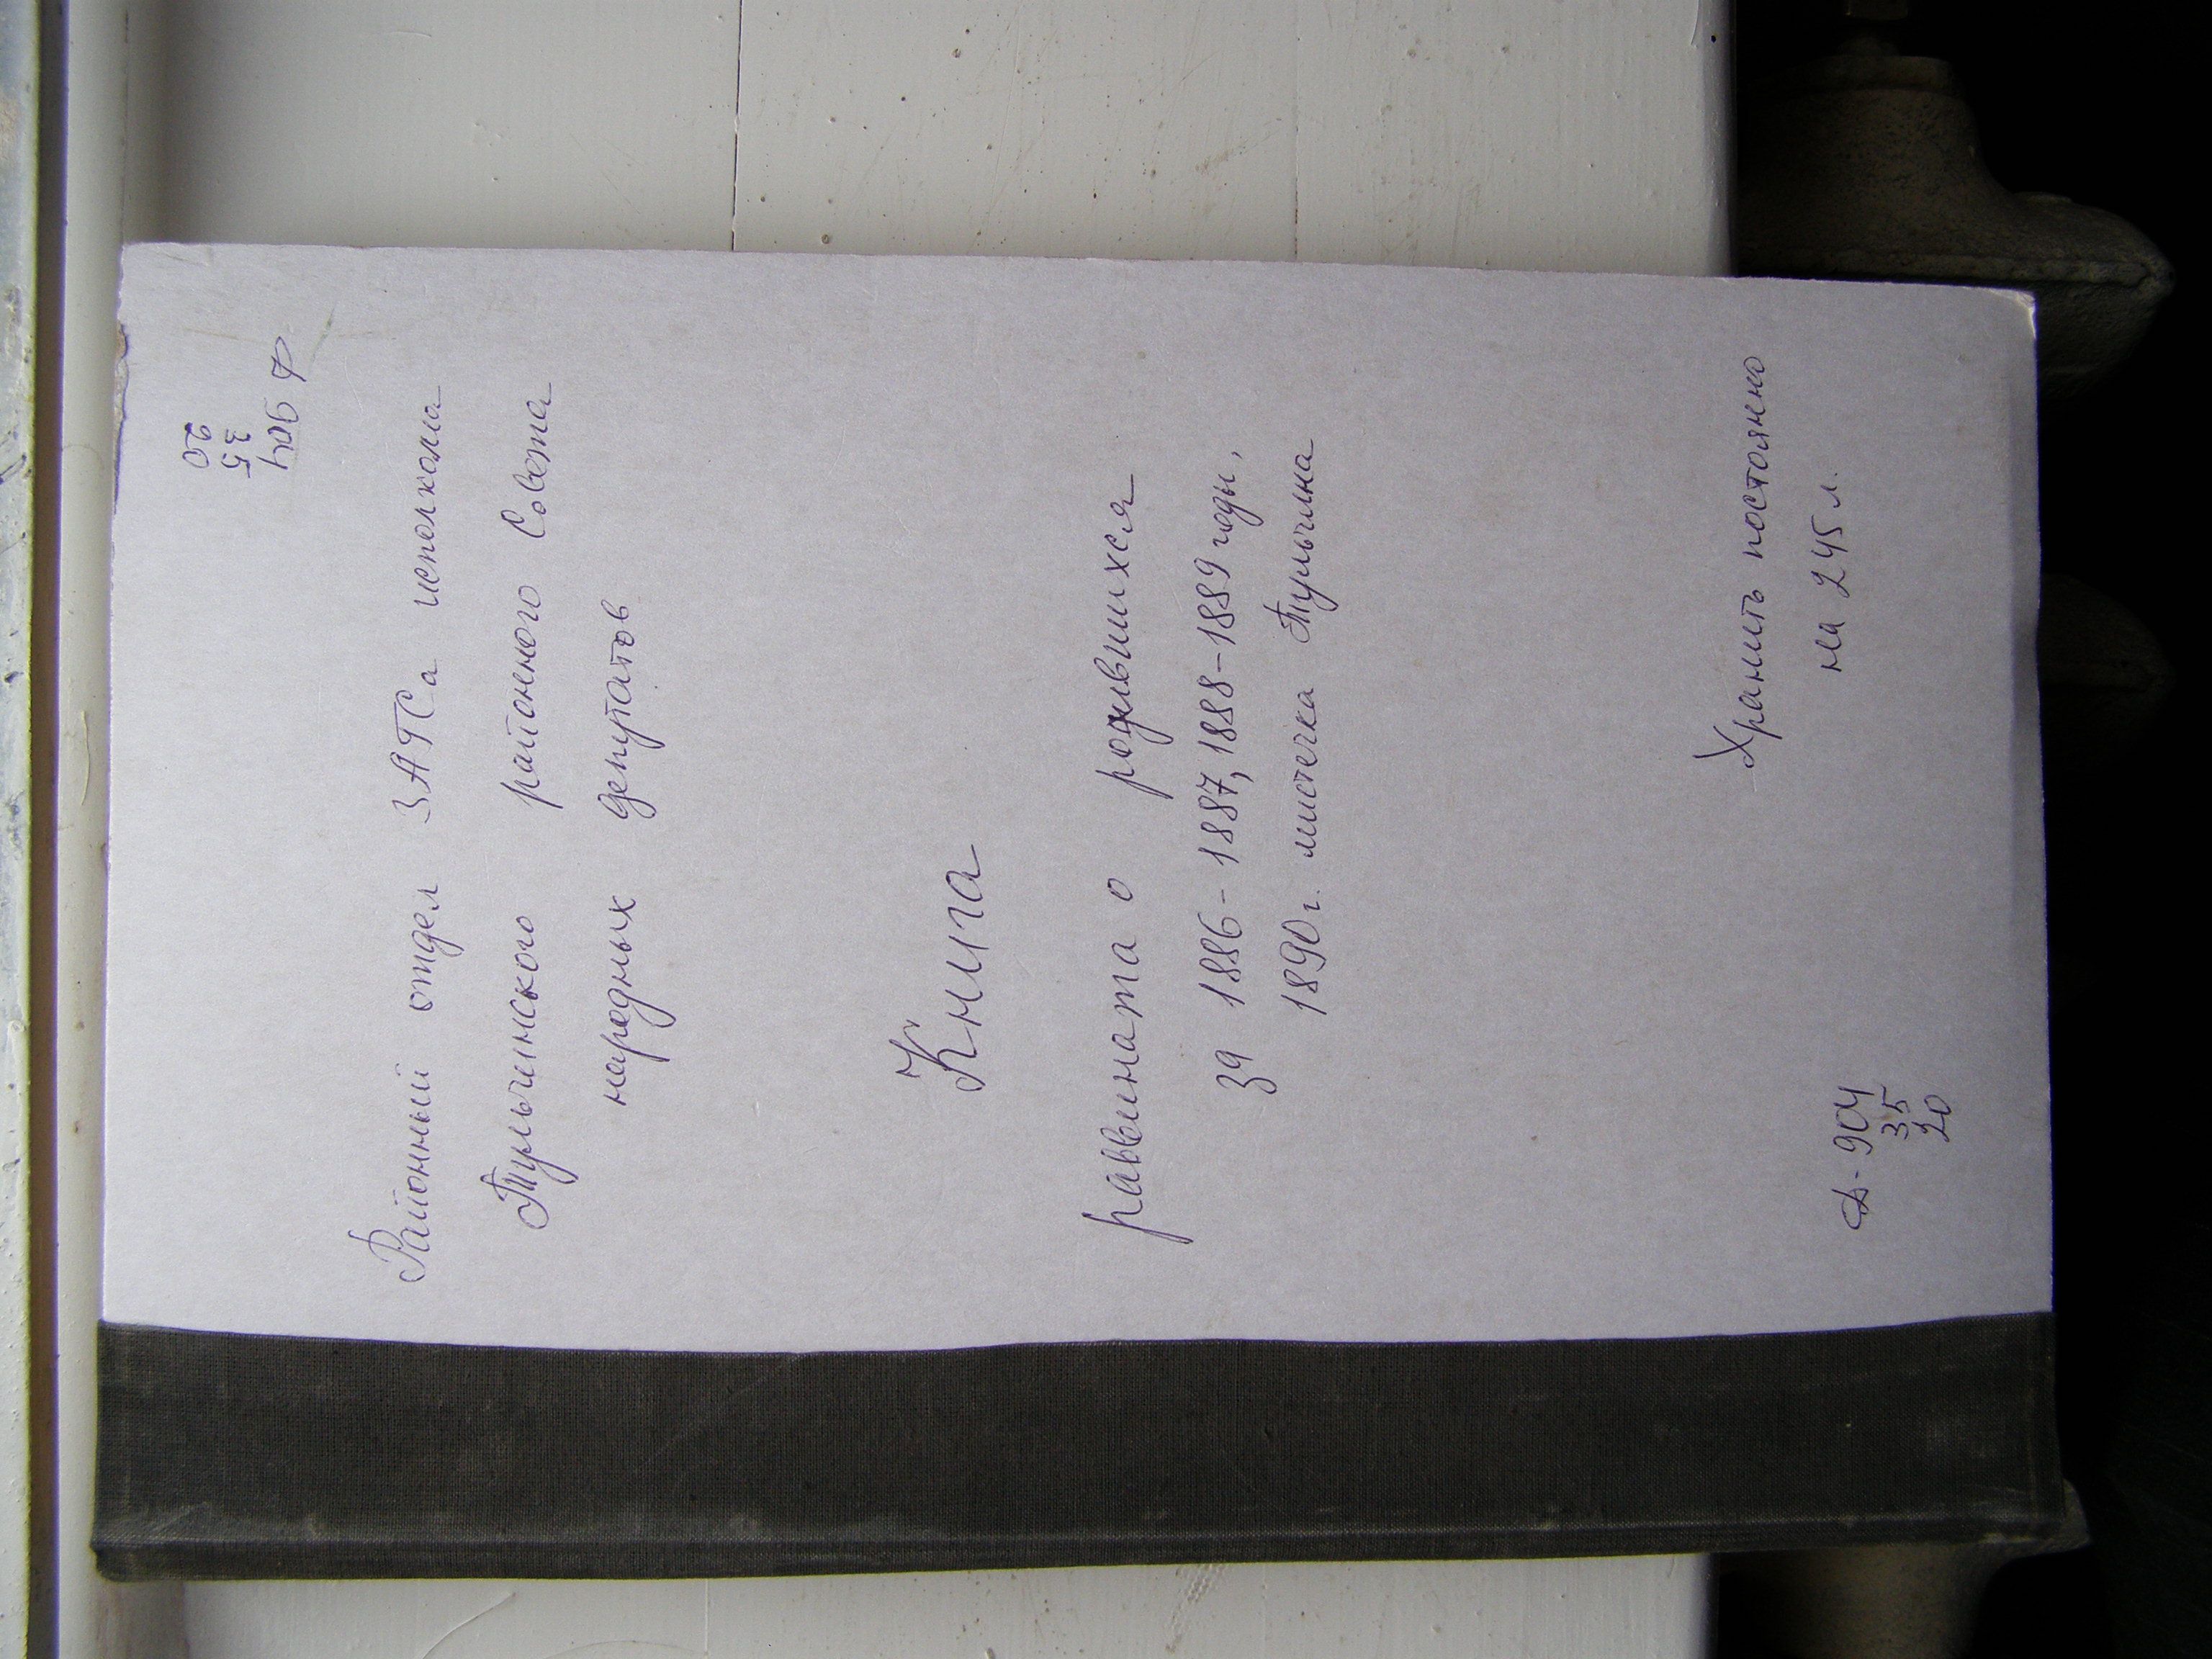 Ф 904
35
20
Районный отдел ЗАГСа исполкома
Тульчинского районного Совета
народных депутатов
Книга
раввината о родившихся
за 1886-1887, 1888-1889 годы,
1890 г. мистечка Тульчина
Хранить постоянно
на 245 л.
Ф-904
35
20